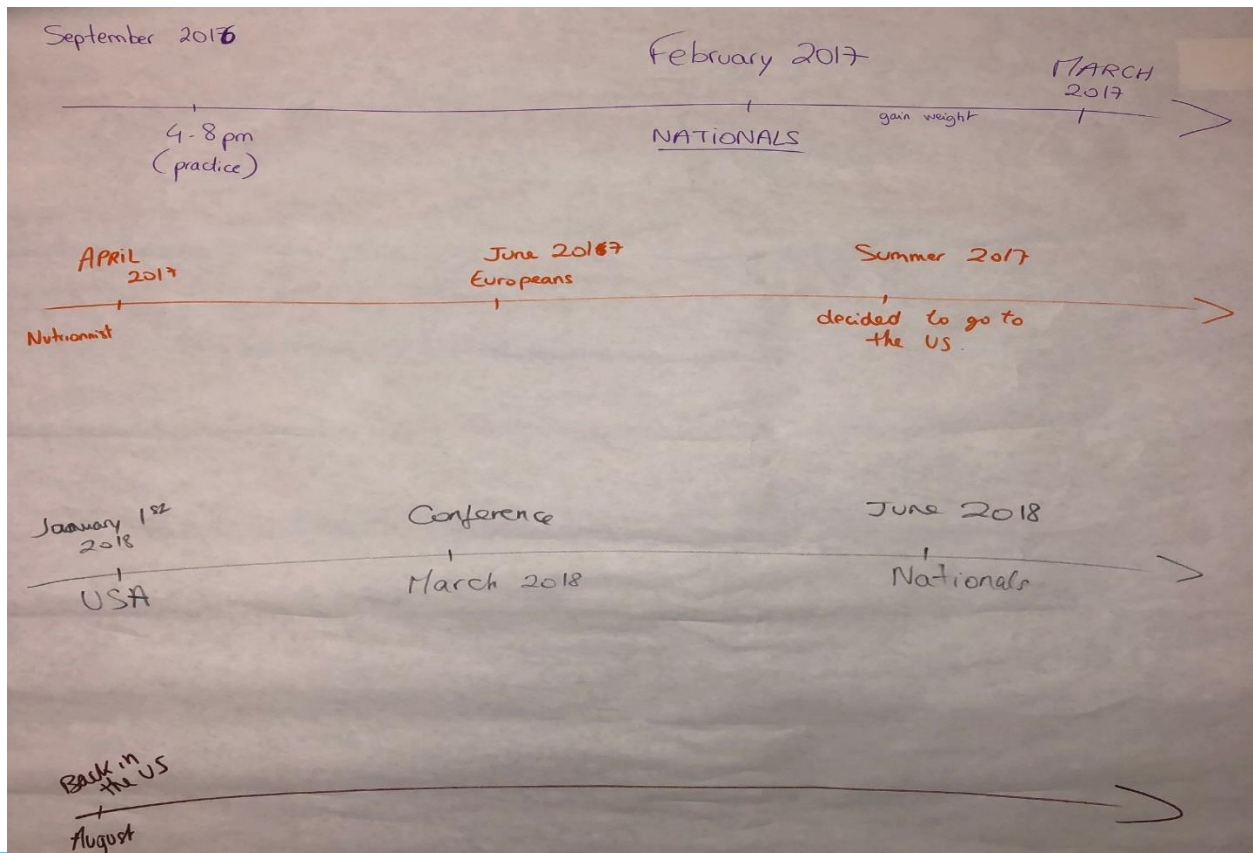 September 2016
February 2017
MARCH
2017
4-8 pm
(practice)
NATIONALS
gain weight
APRIL
2017
June 2017
Europeans
Summer 2017
Nutrionnist
decided to go to
the US.
January 1st
2018
Conference
June 2018
USA
March 2018
Nationals
Back in
the US
August